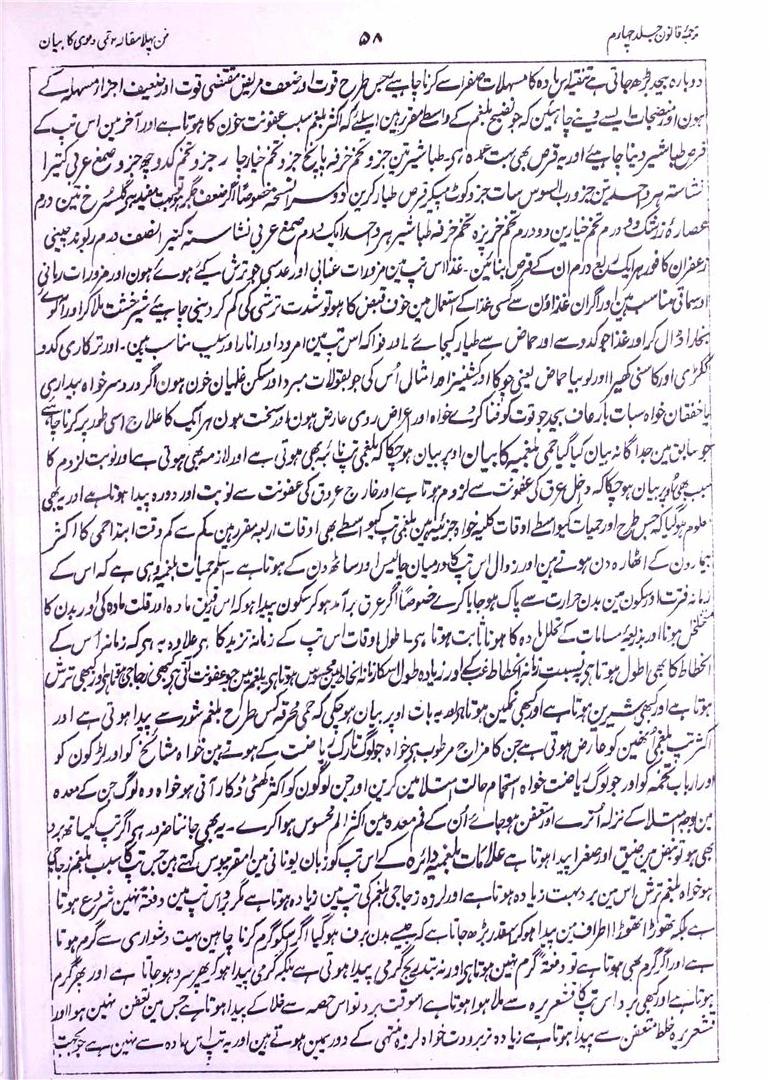 ترجمۂ قانون جلد چہارم
۵۸
فن پہلا مقالہ حمی دموی کا بیان
دوبارہ بیحد بڑھ جاتی ہے تنقیہ اس مادہ کا مسہلات صفرا سے کرنا چاہیے جس طرح قوت اور ضعف مریض مقتضی قوت اور ضعیف اجزاء مسہلہ کے
ہون اور منضجات ایسے دینے چاہئین کہ جو نضیج بلغم کے واسطے مقرر ہین اسلیے کہ اکثر بلغم سبب عفونت خون کا ہوتا ہے اور آخر مین اس تپ کے
قرص طباشیر دینا چاہیے اور یہ قرص بھی بہت عمدہ ہے۔ طباشیر تین جزو تخم خرفہ پانچ جزو تخم خیار چار جزو تخم کدو چھ جزو صمغ عربی کتیرا
نشاستہ ہر واحد تین جزو رب السوس سات جزو کوٹ پیسکر قرص طیار کرین دوسرا نسخہ خصوصاً اگر ضعف جگر ہو بہت مفید ہے گلسرخ تین درم
عصارۂ زرشک دو درم تخم خیارین دو درم تخم خرپزہ تخم خرفہ طباشیر ہر واحد ایک درم صمغ عربی نشاستہ کتیرا نصف درم ریوند چینی
زعفران کافور ہر ایک ربع درم ان کے قرص بنائین۔ غذا اس تپ مین مزورات عنابی اور عدسی جو ترش کیے ہوئے ہون اور مزورات رمانی
اور سماقی مناسب ہین اور اگر ان غذاؤن سے کسی غذا کے استعمال مین خوف قبض کا ہو تو شدت ترشی کی کم کر دینی چاہیے شیرخشت ملاکر اور آلوے
بخارا ڈال کر اور غذا جو کدو سے اور حماض سے طیار کیجائے اور فواکہ اس تپ مین امرود اور انار اور سیب مناسب ہین۔ اور ترکاری کدو
ککڑی اور کاسنی کھیرا اور لوبیا حماض یعنی چوکا اور کشنیز اور امثال اُس کی جو بقولات مبرد اور مسکن غلیان خون ہون اگر درد سر خواہ بیداری
یا خفقان خواہ سبات یا رعاف بیحد جو قوت کو فنا کر دے خواہ اور اعراض ردی عارض ہون اور سخت ہون ہر ایک کا علاج اسی طور پر کرنا چاہیے
جو سابق مین جداگانہ بیان کیا گیا حمی بلغمیہ کا بیان اوپر بیان ہو چکا کہ بلغمی تپ نائبہ بھی ہوتی ہے اور لازمہ بھی ہوتی ہے اور نوبت لزوم کا
سبب بھی اوپر بیان ہو چکا کہ داخل عرق کی عفونت سے لزوم ہوتا ہے اور خارج عروق کی عفونت سے نوبت اور دورہ پیدا ہوتا ہے اور یہ بھی
معلوم ہو گیا کہ جس طرح اور حمیات کیواسطے اوقات کلیہ خواہ جزئیہ ہین بلغمی تپ کیواسطے بھی اوقات اربعہ مقرر ہین کم سے کم وقت ابتدا حمی کا اکثر
بیمارون کے اٹھارہ دن ہوتے ہین اور زوال اس تپ کا درمیان چالیس اور ساٹھ دن کے ہوتا ہے۔ اسلم حمیات بلغمیہ وہی ہے کہ اس کے
زمانہ فترت اور سکون مین بدن حرارت سے پاک ہو جایا کرے خصوصاً اگر عرق برآمد ہو کر سکون پیدا ہو کہ اس رقیق مادہ اور قلت مادہ کی اور بدن کا
متخلخل ہونا اور بذریعہ مسامات کے تحلل مادہ کا ہونا ثابت ہوتا ہے۔ اطول اوقات اس تپ کے زمانہ تزید کا ہے علاوہ یہ ہے کہ زمانہ اُس کے
انحطاط کا بھی اطول ہوتا ہے بنسبت زمانہ انحطاط غب کے اور زیادہ طول اسکا زمانہ انحطاط مین محسوس ہوتا ہے بلغم مین جو عفونت آتی ہے کبھی زجاجی ہوتا ہے اور کبھی ترش
ہوتا ہے اور کبھی شیرین ہوتا ہے اور کبھی نمکین ہوتا ہے اور یہ بات اوپر بیان ہو چکی کہ حمی محرقہ کس طرح بلغم شور سے پیدا ہوتی ہے اور
اکثر تپ بلغمی اُنھین کو عارض ہوتی ہے جن کا مزاج مرطوب ہے خواہ جو لوگ تارک ریاضت کے ہوتے ہین خواہ مشائخ کو اور لڑکون کو
اور ارباب تخمہ کو اور جو لوگ ریاضت خواہ استحمام حالت امتلا مین کرین اور جن لوگون کو اکثر کھٹی ڈکار آتی ہو خواہ وہ لوگ جن کے معدہ
مین بوجہ امتلا کے نزلہ اُترے اور متعفن ہو جائے اُن کے فم معدہ مین اکثر الم محسوس ہوا کرے۔ یہ بھی جاننا ضرور ہے اگر تپ کیساتھ برد
بھی ہو تو نبض مین ضیق اور صغر پیدا ہوتا ہے علامات بلغمیہ دائرہ کے اس تپ کو زبان یونانی مین امفریوس کہتے ہین جس تپ کا سبب بلغم زجاجی
ہو خواہ بلغم ترش اس مین برد بہت زیادہ ہوتا ہے اور لرزہ زجاجی بلغم کی تپ مین زیادہ ہوتا ہے مگر برد اس تپ مین دفعۃً نہین شروع ہوتا
ہے بلکہ تھوڑا تھوڑا اطراف مین پیدا ہو کر اسقدر بڑھ جاتا ہے کہ جیسے بدن برف ہو گیا اگر اسکو گرم کرنا چاہین بہت دشواری سے گرم ہوتا
ہے اور اگر گرم بھی ہوتا ہے تو دفعۃً گرم نہین ہوتا ہے اور نہ بتدریج گرمی پیدا ہوتی ہے بلکہ گرمی پیدا ہو کر پھر سرد ہو جاتا ہے اور پھر گرم
ہوتا ہے اور کبھی برد اس تپ کا قشعریرہ سے ملا ہوا ہوتا ہے اسوقت برد تو اس حصہ سے خلط کے پیدا ہوتا ہے جس مین تعفن نہین ہوا اور
قشعریرہ خلط متعفن سے پیدا ہوتا ہے زیادہ تر برودت خواہ لرزہ منتہی کے دور مین ہوتے ہین اور یہ تپ اس مادہ سے نہین ہے جو بہت